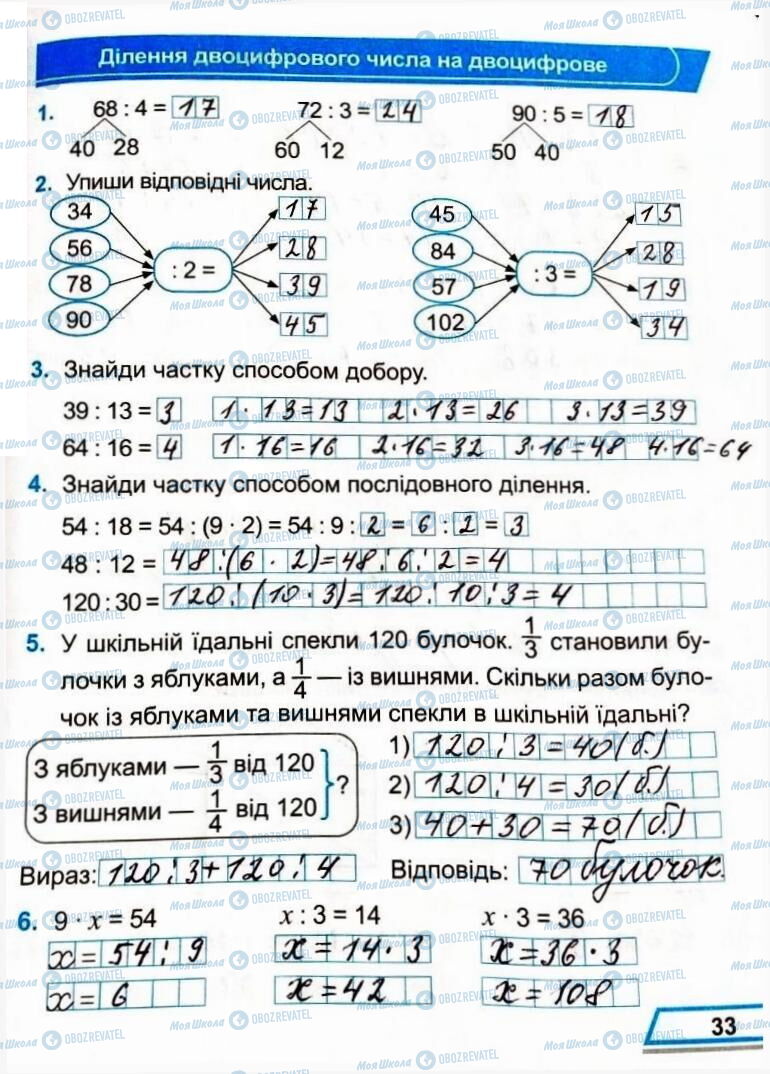 Ділення двоцифрового числа на двоцифрове
1. 68 : 4 = 17 72 : 3 = 24 90 : 5 = 18
40 28 60 12 50 40
2. Упиши відповідні числа.
34 17 45 15
56 28 84 28
: 2 = : 3 =
78 39 57 19
90 45 102 34
3. Знайди частку способом добору.
39 : 13 = 3 1 · 13 = 13 2 · 13 = 26 3 · 13 = 39
64 : 16 = 4 1 · 16 = 16 2 · 16 = 32 3 · 16 = 48 4 · 16 = 64
4. Знайди частку способом послідовного ділення.
54 : 18 = 54 : (9 · 2) = 54 : 9 : 2 = 6 : 2 = 3
48 : 12 = 48 : (6 · 2) = 48 : 6 : 2 = 4
120 : 30 = 120 : (10 · 3) = 120 : 10 : 3 = 4
5. У шкільній їдальні спекли 120 булочок. 1/3 становили бу-
лочки з яблуками, а 1/4 — із вишнями. Скільки разом було-
чок із яблуками та вишнями спекли в шкільній їдальні?
З яблуками — 1/3 від 120
З вишнями — 1/4 від 120
?
1) 120 : 3 = 40 (б.)
2) 120 : 4 = 30 (б.)
3) 40 + 30 = 70 (б.)
Вираз: 120 : 3 + 120 : 4 Відповідь: 70 булочок.
6. 9 · x = 54 x : 3 = 14 x · 3 = 36
x = 54 : 9 x = 14 · 3 x = 36 · 3
x = 6 x = 42 x = 108
33
Моя Школа OBOZREVATEL